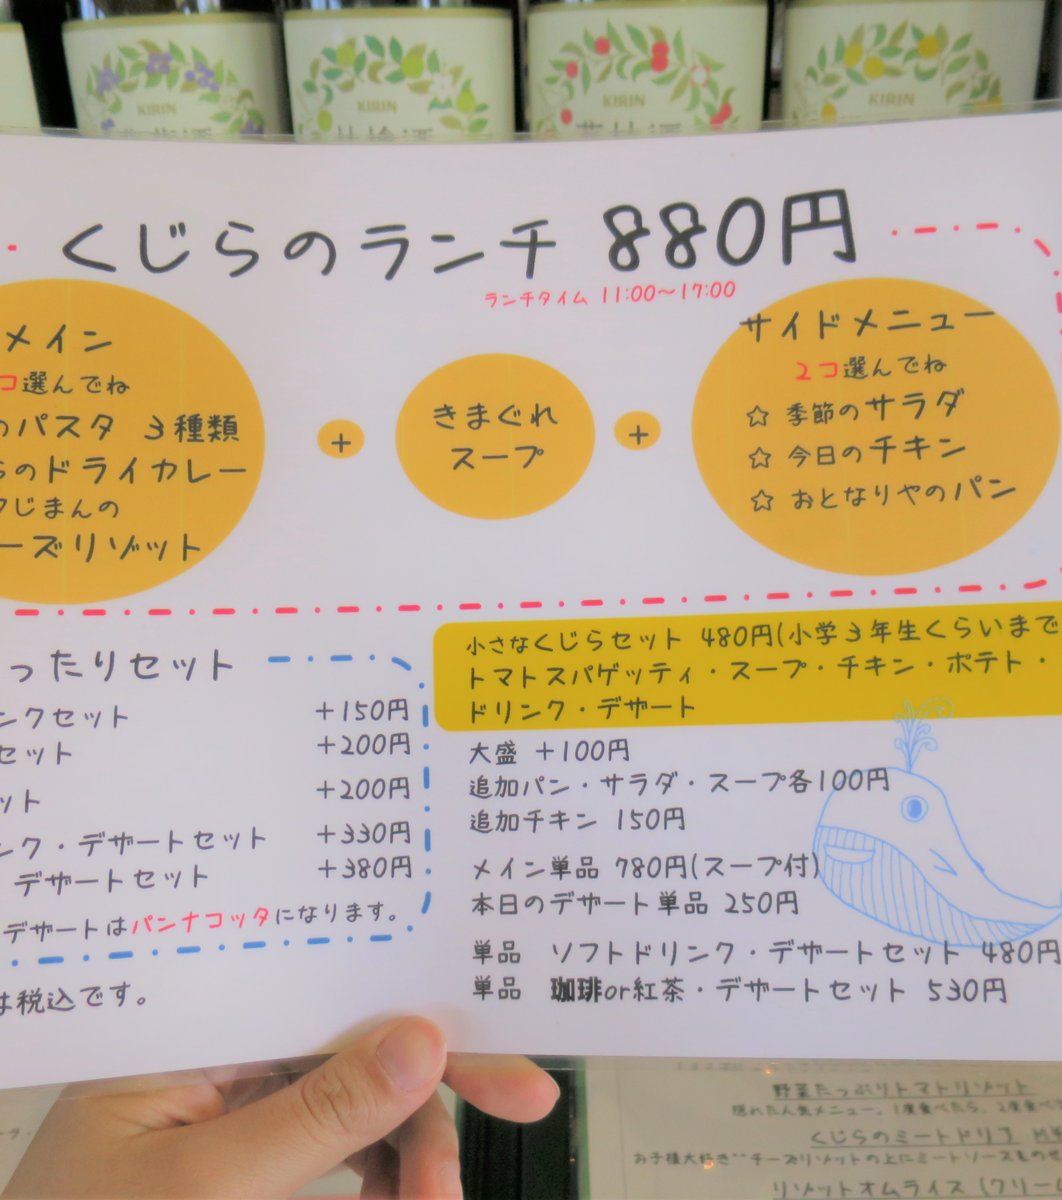 KIRIN
KIRIN
KIRIN
KIRIN
くじらのランチ 880円
ランチタイム 11:00〜17:00
メイン
コ選んでね
のパスタ 3種類
らのドライカレー
フじまんの
ーズリゾット
+
きまぐれ
スープ
+
サイドメニュー
2コ選んでね
☆ 季節のサラダ
☆ 今日のチキン
☆ おとなりやのパン
ったりセット
ンクセット +150円
セット +200円
ット +200円
ンク・デザートセット +330円
・デザートセット +380円
デザートはパンナコッタになります。
は税込です。
小さなくじらセット 480円(小学3年生くらいまで
トマトスパゲッティ・スープ・チキン・ポテト・
ドリンク・デザート
大盛 +100円
追加パン・サラダ・スープ各100円
追加チキン 150円
メイン単品 780円(スープ付)
本日のデザート単品 250円
単品 ソフトドリンク・デザートセット 480円
単品 珈琲or紅茶・デザートセット 530円
野菜たっぷりトマトリゾット
隠れた人気メニュー。1度食べたら、2度食べ
くじらのミートドリア
お子様大好き チーズリゾットの上にミートソースをのせ
リゾットオムライス (クリー